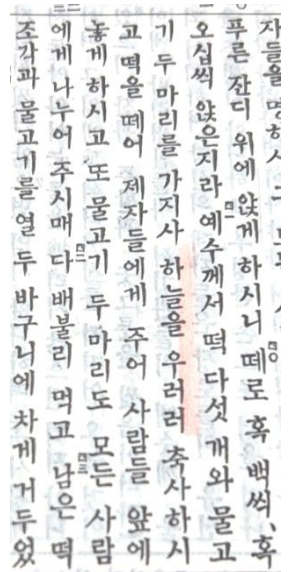 자들을 명하
푸른 잔디 위에 앉게 하시니 四〇 떼로 혹 백씩, 혹
오십씩 앉은지라 四一 예수께서 떡 다섯 개와 물고
기 두 마리를 가지사 하늘을 우러러 축사하시
고 떡을 떼어 제자들에게 주어 사람들 앞에
놓게 하시고 또 물고기 두 마리도 모든 사람
에게 나누어 주시매 四二 다 배불리 먹고 四三 남은 떡
조각과 물고기를 열 두 바구니에 차게 거두었